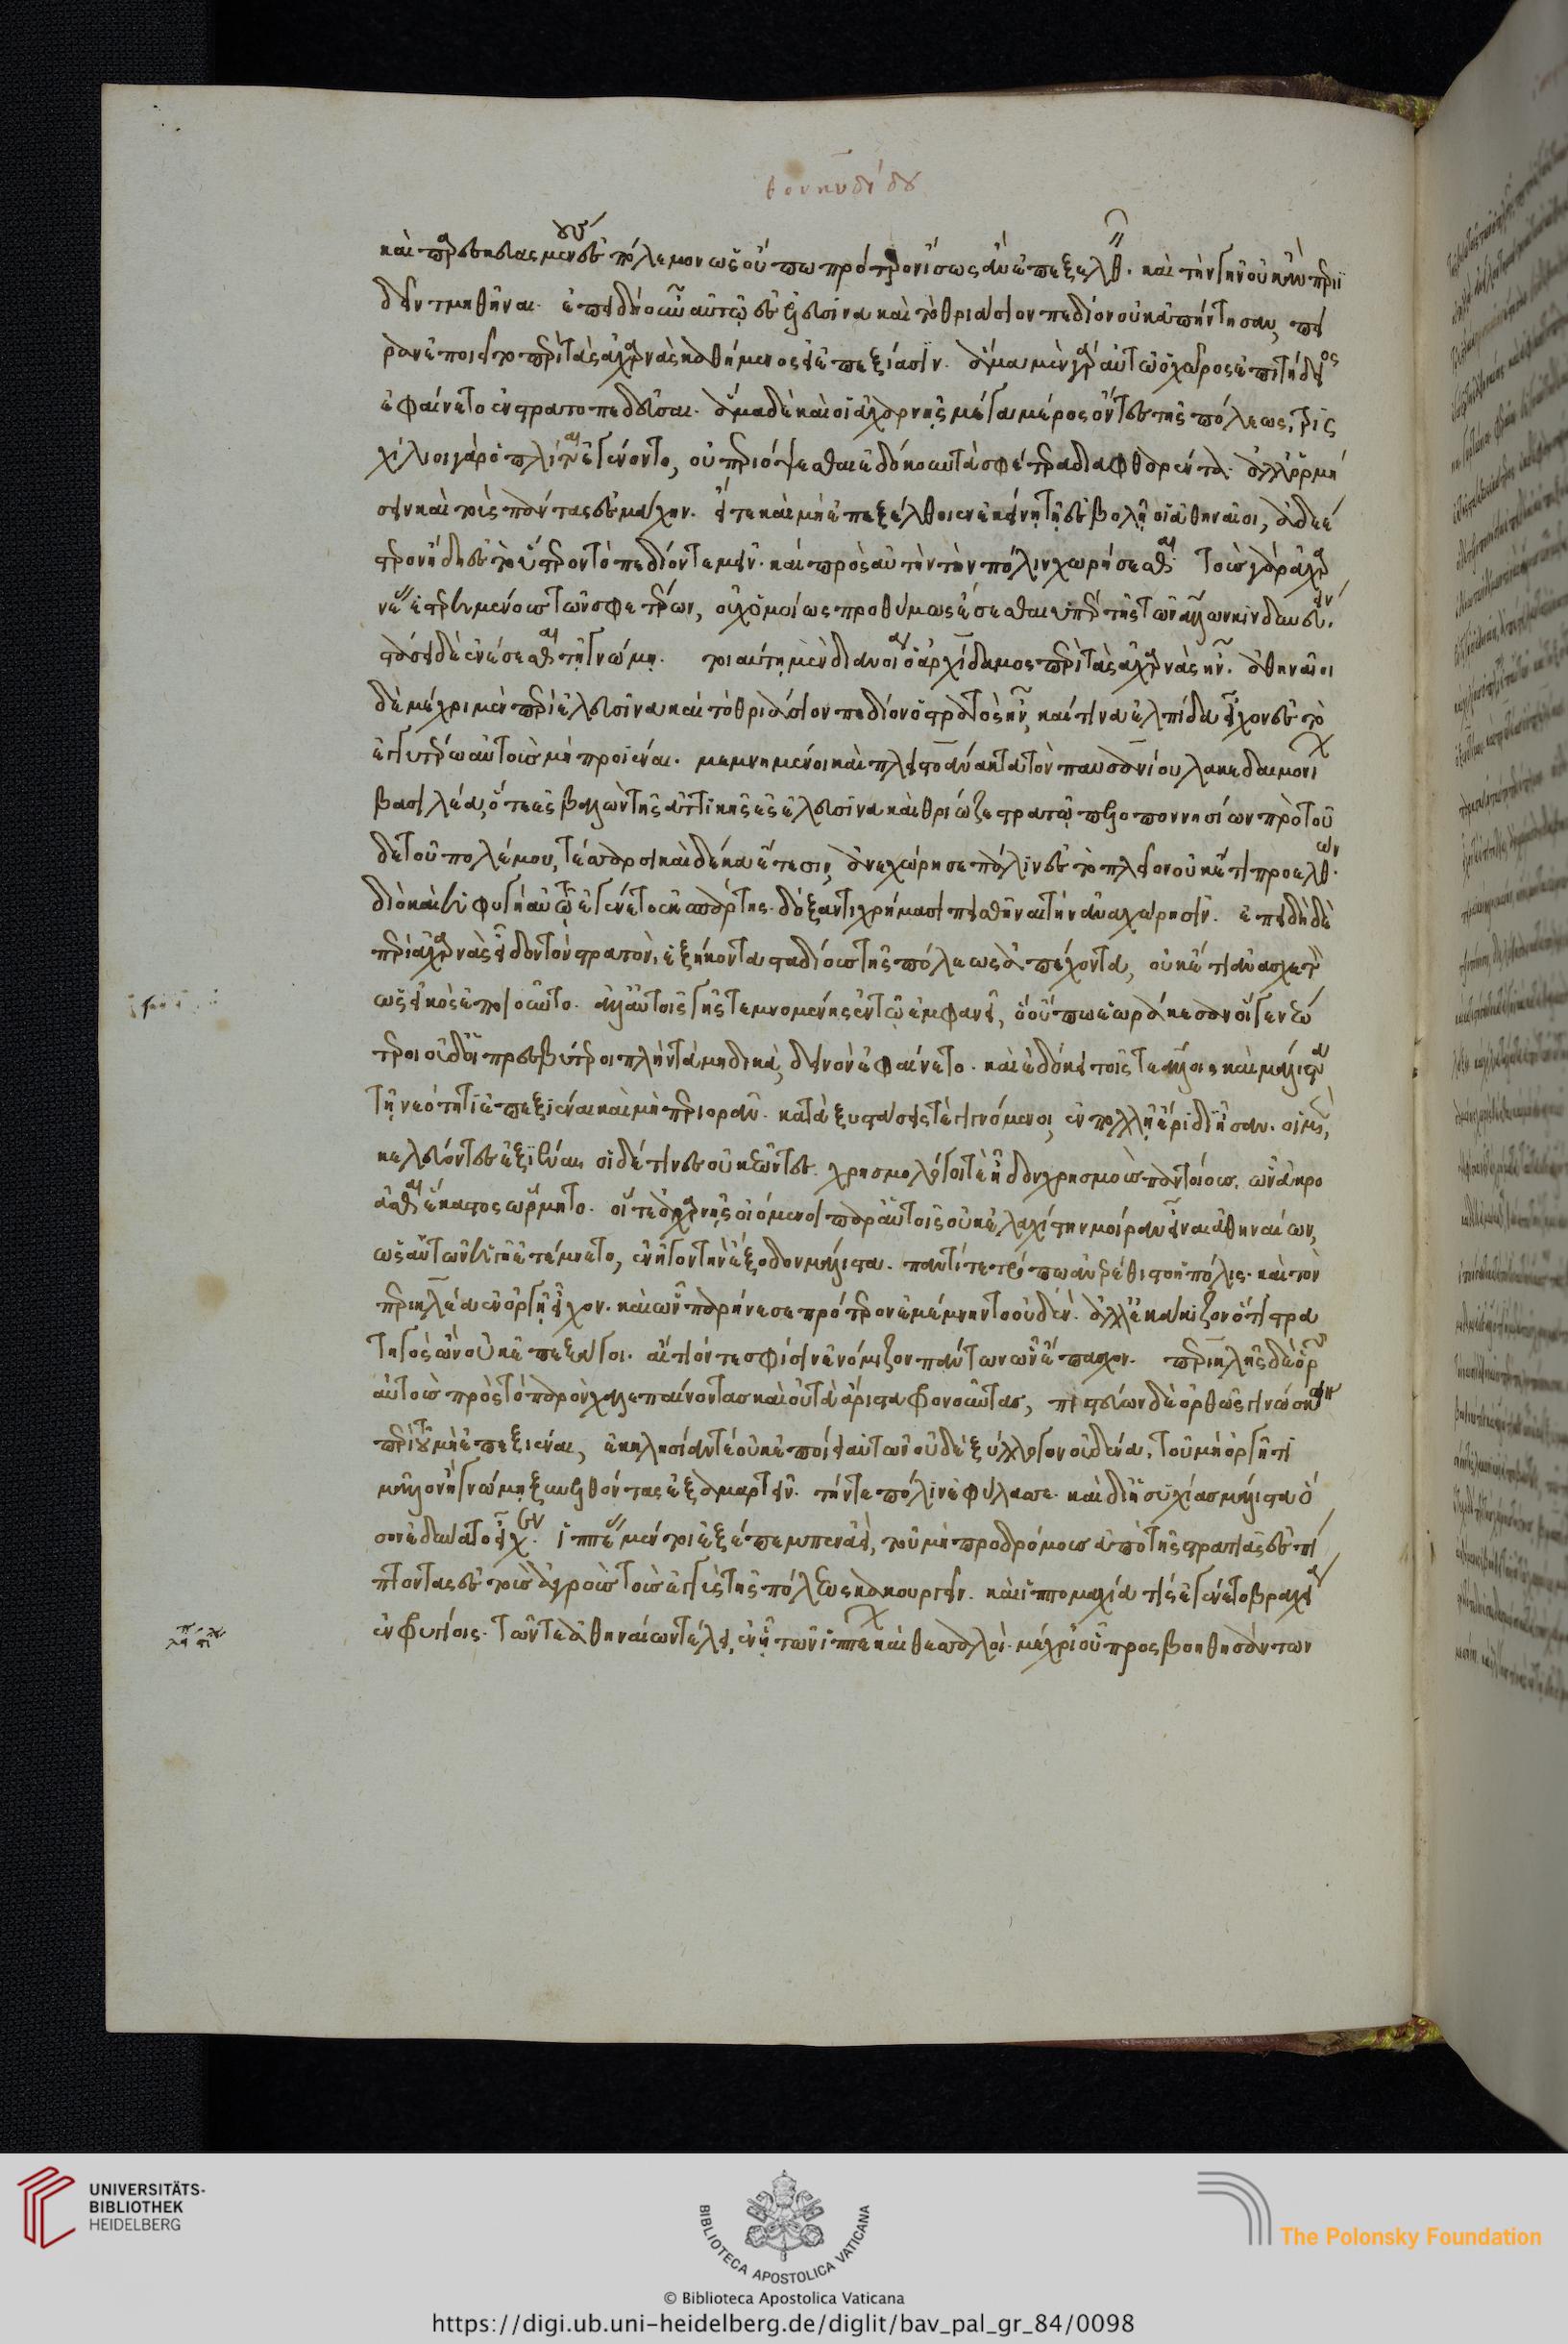 θουκυδίδου
καὶ παρεσκευασμένους ἐς πόλεμον ὡς οὔπω πρότερον ἴσως ἂν ἐπεξελθεῖν. καὶ τὴν γῆν οὐκ ἂν περιϊ
δεῖν τμηθῆναι. ἐπειδὴ οὖν αὐτῷ ἐς ἐλευσῖνα καὶ τὸ θριάσιον πεδίον οὐκ ἀπήντησαν, πεῖ
ραν ἐποιεῖτο περὶ τὰς ἀχαρνὰς καθήμενος εἰ ἐπεξίασιν. ἅμα μὲν γὰρ αὐτῷ ὁ χῶρος ἐπιτήδειος
ἐφαίνετο ἐνστρατοπεδεῦσαι. ἅμα δὲ καὶ οἱ ἀχαρνῆς μέγα μέρος ὄντες τῆς πόλεως, τρισ
χίλιοι γὰρ ὁπλίται ἐγένοντο, οὐ περιόψεσθαι ἐδόκουν τὰ σφέτερα διαφθαρέντα. ἀλλ' ὁρμή
σειν καὶ τοὺς πάντας ἐς μάχην. εἴ τε καὶ μὴ ἐπεξέλθοιεν ἐκείνῃ τῇ ἐσβολῇ οἱ ἀθηναῖοι, ἀδεέ
στερον ἤδη ἐς τὸ ὕστερον τὸ πεδίον τεμεῖν. καὶ πρὸς αὐτὴν τὴν πόλιν χωρήσεσθαι. τοὺς γὰρ ἀχαρ
νέας ἐστερημένους τῶν σφετέρων, οὐχ ὁμοίως προθύμως ἔσεσθαι ὑπὲρ τῆς τῶν ἄλλων κινδυνεύειν.
στάσιν δὲ ἐνέσεσθαι τῇ γνώμῃ. τοιαύτῃ μὲν διανοίᾳ ὁ ἀρχίδαμος περὶ τὰς ἀχαρνὰς ἦν. ἀθηναῖοι
δὲ μέχρι μὲν περὶ ἐλευσῖνα καὶ τὸ θριάσιον πεδίον ὁ στρατὸς ἦν, καί τινα ἐλπίδα εἶχον ἐς τὸ
ἐγγυτέρω αὐτοὺς μὴ προϊέναι. μεμνημένοι καὶ πλειστοάνακτα τὸν παυσανίου λακεδαιμονίων
βασιλέα, ὅτε ἐσβαλὼν τῆς ἀττικῆς ἐς ἐλευσῖνα καὶ θριῶζε στρατῷ πελοποννησίων πρὸ τοῦ
δε τοῦ πολέμου, τέσσαρσι καὶ δέκα ἔτεσιν, ἀνεχώρησε πάλιν ἐς τὸ πλεῖον οὐκέτι προελθών.
διὸ καὶ ἡ φυγὴ αὐτῷ ἐγένετο ἐκ σπάρτης. δόξαντι χρήμασι πεισθῆναι τὴν ἀναχώρησιν. ἐπειδὴ δὲ
περὶ ἀχαρνὰς εἶδον τὸν στρατὸν, ἑξήκοντα σταδίους τῆς πόλεως ἀπέχοντα, οὐκέτι ἀνασχετὸν
ἐποιοῦντο. ἀλλ' αὐτοῖς ὡς εἰκὸς γῆς τεμνομένης ἐν τῷ ἐμφανεῖ, ὃ οὔπω ἑωράκεσαν οἵ γε νεώ
τεροι οὐδ' οἱ πρεσβύτεροι πλὴν τὰ μηδικὰ, δεινὸν ἐφαίνετο. καὶ ἐδόκει τοῖς τε ἄλλοις καὶ μάλιστα
τῇ νεότητι ἐπεξιέναι καὶ μὴ περιορᾶν. κατὰ ξυστάσεις τε γιγνόμενοι, ἐν πολλῇ ἔριδι ἦσαν. οἱ μὲν,
κελεύοντες ἐπεξιέναι, οἱ δέ τινες οὐκ ἐῶντες. χρησμολόγοι τε ᾖδον χρησμοὺς παντοίους. ὧν ἀκρο
ᾶσθαι ἕκαστος ὥρμητο. οἵ τε ἀχαρνῆς οἰόμενοι παρ' αὑτοῖς οὐκ ἐλαχίστην μοῖραν εἶναι ἀθηναίων,
ὡς αὐτῶν ἡ γῆ ἐτέμνετο, ἐνῆγον τὴν ἔξοδον μάλιστα. παντί τε τρόπῳ ἀνηρέθιστο ἡ πόλις. καὶ τὸν
περικλέα ἐν ὀργῇ εἶχον. καὶ ὧν παρῄνεσε πρότερον ἐμέμνηντο οὐδέν. ἀλλ' ἐκάκιζον ὅτι στρα
τηγὸς ὢν οὐκ ἐπεξάγοι. αἴτιόν τε σφίσιν ἐνόμιζον πάντων ὧν ἔπασχον. περικλῆς δὲ ὁρῶν
αὐτοὺς πρὸς τὸ παρὸν χαλεπαίνοντας καὶ οὐ τὰ ἄριστα φρονοῦντας, πιστεύων δὲ ὀρθῶς γιγνώσκειν
περὶ τοῦ μὴ ἐπεξιέναι, ἐκκλησίαν τε οὐκ ἐποίει αὐτῶν οὐδὲ ξύλλογον οὐδένα. τοῦ μὴ ὀργῇ τι
μᾶλλον ἢ γνώμῃ ξυνελθόντας ἐξαμαρτεῖν. τήν τε πόλιν ἐφύλασσε. καὶ δι' ἡσυχίας μάλιστα ὅ
σον ἐδύνατο εἶχεν. ἱππέας μέντοι ἐξέπεμπεν ἀεὶ, τοῦ μὴ προδρόμους ἀπὸ τῆς στρατιᾶς ἐσπί
πτοντας ἐς τοὺς ἀγροὺς τοὺς ἐγγὺς τῆς πόλεως κακουργεῖν. καὶ ἱππομαχία τις ἐγένετο βραχεῖα
ἐν φρυγίοις. τῶν τε ἀθηναίων τέλει ἑνὶ τῶν ἱππέων καὶ θεσσαλοῖ. μέχρι οὗ προσβοηθησάντων
UNIVERSITÄTS-
BIBLIOTHEK
HEIDELBERG
BIBLIOTECA APOSTOLICA VATICANA
The Polonsky Foundation
© Biblioteca Apostolica Vaticana
https://digi.ub.uni-heidelberg.de/diglit/bav_pal_gr_84/0098